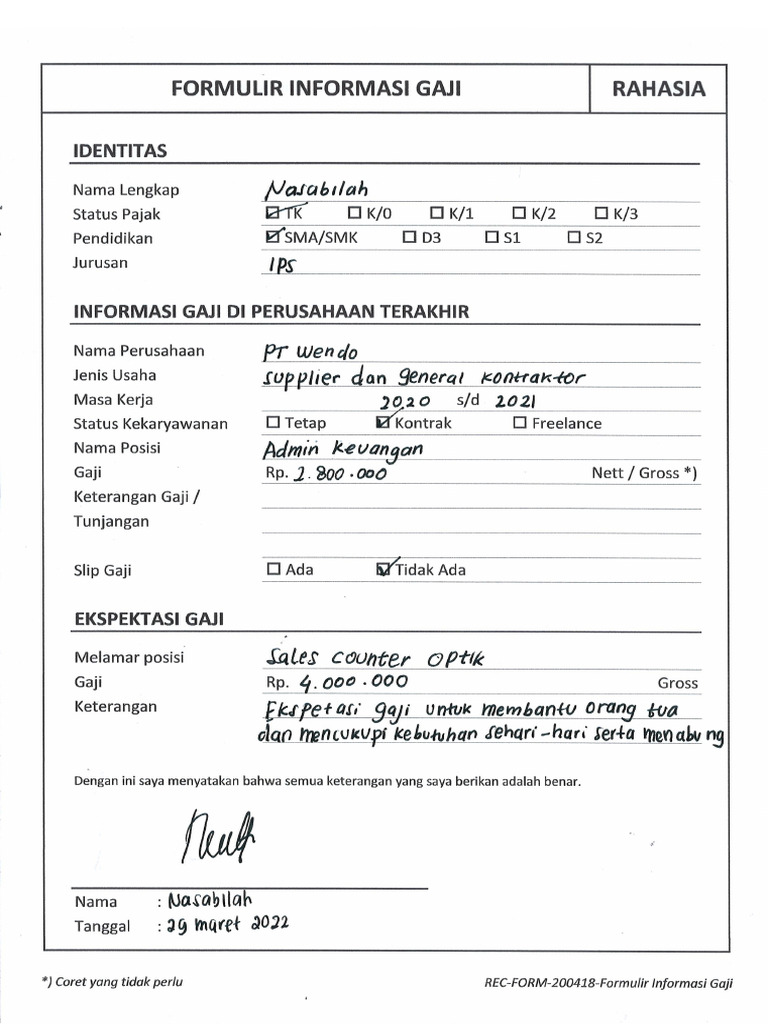 FORMULIR INFORMASI GAJI RAHASIA
IDENTITAS
Nama Lengkap Nasabilah
Status Pajak ☑ TK ☐ K/0 ☐ K/1 ☐ K/2 ☐ K/3
Pendidikan ☑ SMA/SMK ☐ D3 ☐ S1 ☐ S2
Jurusan IPS
INFORMASI GAJI DI PERUSAHAAN TERAKHIR
Nama Perusahaan PT Wendo
Jenis Usaha supplier dan general kontraktor
Masa Kerja 2020 s/d 2021
Status Kekaryawanan ☐ Tetap ☑ Kontrak ☐ Freelance
Nama Posisi Admin keuangan
Gaji Rp. 2.800.000 Nett / Gross *)
Keterangan Gaji /
Tunjangan
Slip Gaji ☐ Ada ☑ Tidak Ada
EKSPEKTASI GAJI
Melamar posisi Sales counter optik
Gaji Rp. 4.000.000 Gross
Keterangan Ekspetasi gaji untuk membantu orang tua
dan mencukupi kebutuhan sehari-hari serta menabung
Dengan ini saya menyatakan bahwa semua keterangan yang saya berikan adalah benar.
Nama : Nasabilah
Tanggal : 29 maret 2022
*) Coret yang tidak perlu REC-FORM-200418-Formulir Informasi Gaji